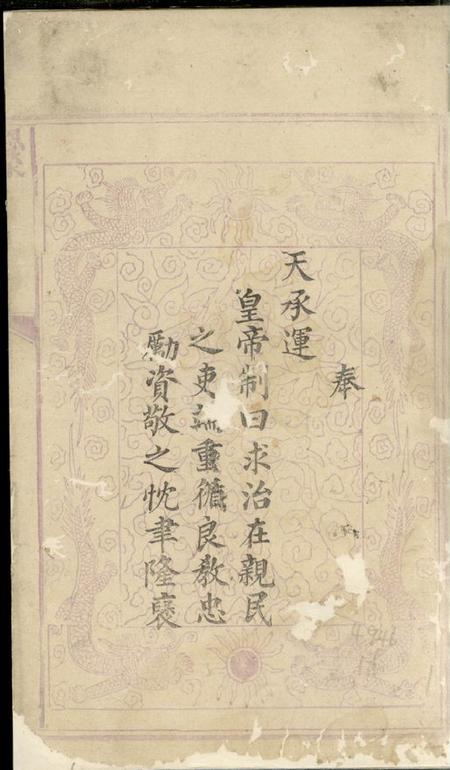 奉
天承運
皇帝制曰求治在親民
之吏重循良教忠
勵資敬之忱聿隆褒
4946